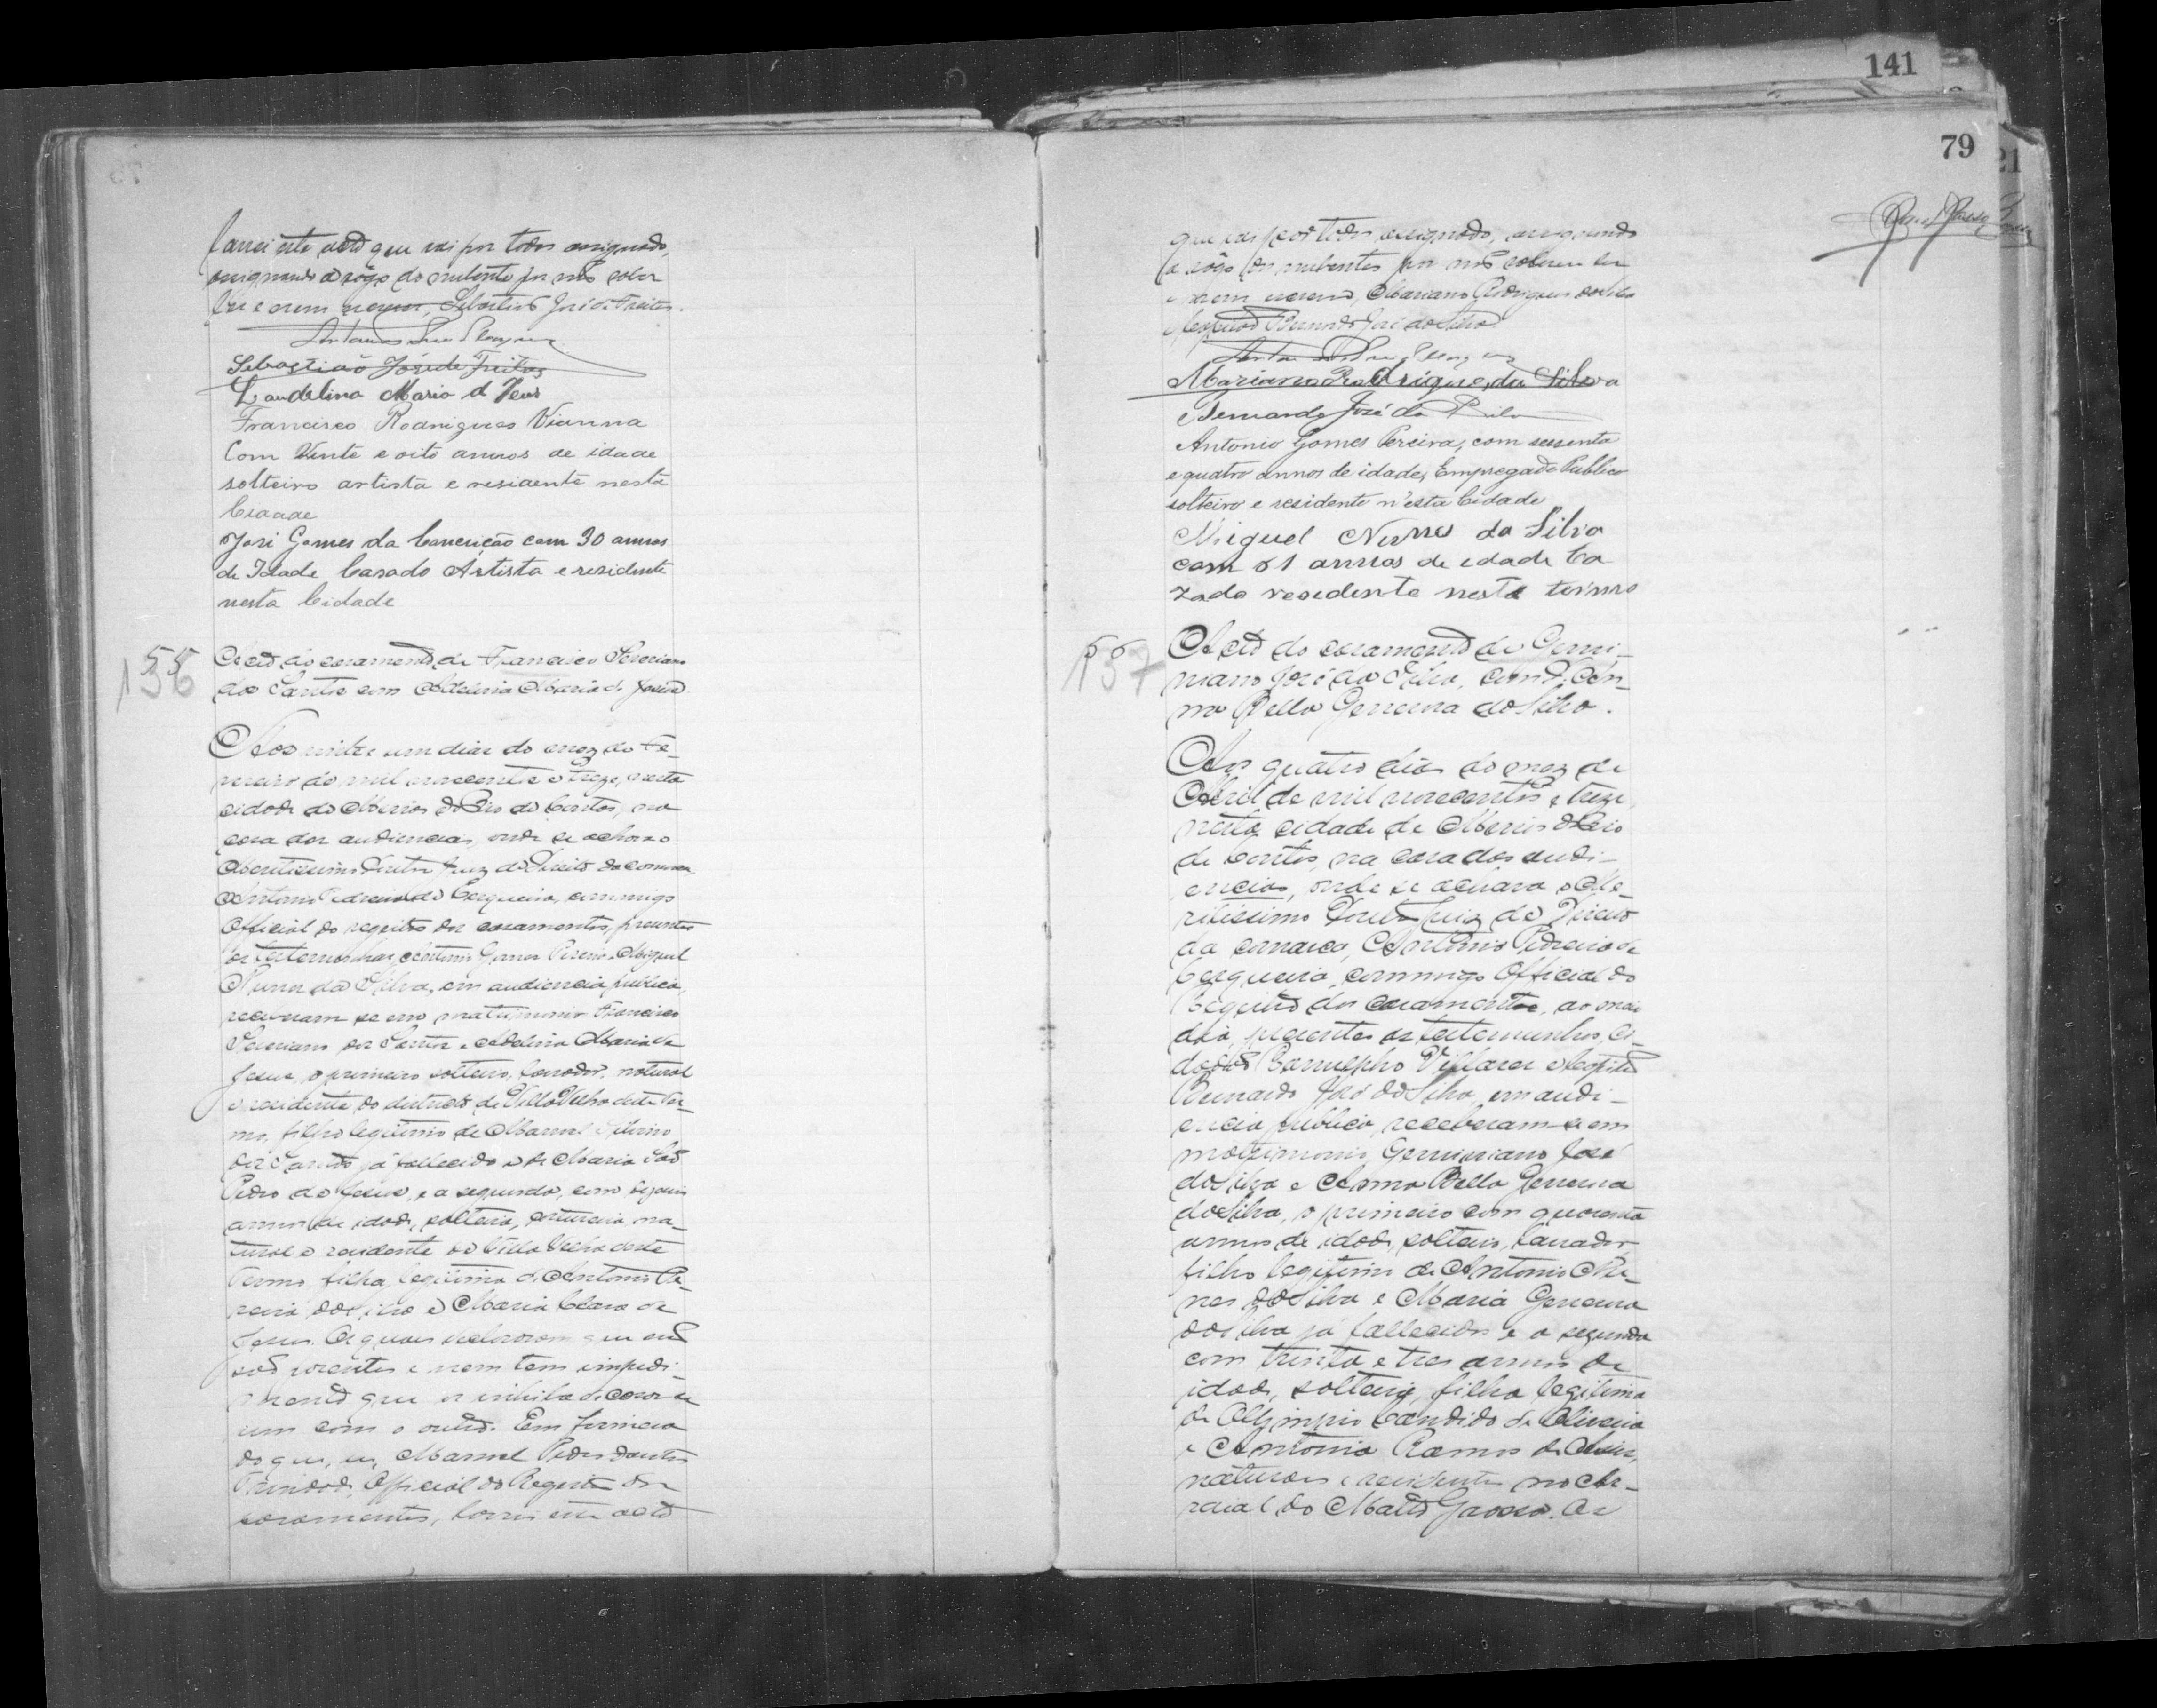 lavrei este acto que vai por todos assignado,
assignando a rôgo do nubente por não saber
ler e nem escrever, Sebastião José de Freitas.
Sebastião José de Freitas
Laudelina Maria d Jesus
Francisco Rodrigues Vianna
Com Vinte e oito annos de idade
solteiro artista e residente nesta
Cidade
José Gomes da Conceição com 30 annos
de Idade Casado Artista e residente
nesta Cidade
55
156
Acto do casamento de Francisco Severiano
dos Santos com Adelina Maria de Jesus
Aos vinte e um dias do mez de Fe-
vereiro de mil novecentos e treze, nesta
cidade de Minas do Rio de Contas, na
casa das audiencias, onde se achava o
Meritissimo Doutor Juiz de Direito da comarca
Antonio Pedreira de Cerqueira, commigo
Official do registro dos casamentos, presentes
as testemunhas, Antonio Gomes Pereira e Miguel
Nunes da Silva, em audiencia publica,
receveram se em matrimonio Francisco
Severiano dos Santos e Adelina Maria de
Jesus, o primeiro solteiro, lavrador, natural
e residente do districto de Villa Velha deste Ter-
mo, filho legitimo de Manoel
dos Santos já fallecido e de Maria São
Pedro de Jesus, e a segunda, com
annos de idade, solteira, costureira, na-
tural e residente de Villa Velha deste
Termo, filha legitima de Antonio Pe-
reira da Silva e Maria Clara de
Jesus. Os quais declararam que não
são parentes e nem tem impedi-
mento que os inhiba de casar se
um com o outro. Em firmeza
do que, eu, Manoel Pedro dantas
Trindade, Official do Registro dos
casamentos, lavrei este acto
141
79
21
que vai por todos assignado, assignando
a rôgo dos nubentes por não saberem ler
e nem escrever, Mariano Rodrigues da Silva
e Capitão Bernardo José da Silva.
Mariano Rodrigues da Silva
Bernardo José da Silva
Antonio Gomes Pereira, com sessenta
e quatro annos de idade, Empregado Publico
solteiro e residente n'esta Cidade
Miguel Nunes da Silva
com 61 annos de idade Ca
zado residente neste termo
56
157
Acto do casamento de Gemi-
niano José da Silva, com D. An-
na Bella Gerena da Silva.
Aos quatro dias do mez de
Abril de mil novecentos e treze,
nesta cidade de Minas do Rio
de Contas, na casa das audi-
encias, onde se achava o Me-
ritissimo Doutor Juiz de Direito
da comarca, Antonio Pedreira de
Cerqueira, commigo Official do
Registro dos casamentos, ao meio
dia, presentes as testemunhas, ci-
dadãos Villares e Capitão
Bernardo José da Silva, em audi-
encia publica, receberam-se em
matrimonio Geminiano José
da Silva e Anna Bella Gerena
da Silva, o primeiro com quarenta
annos de idade, solteiro, lavrador,
filho legitimo de Antonio
da Silva e Maria Gerena
da Silva já fallecidos e a segunda
com trinta e tres annos de
idade, solteira, filha legitima
de Olympio Candido de Oliveira
e Antonia Ramos de
naturaes e residentes no Ar-
raial do Matto Grosso. Os